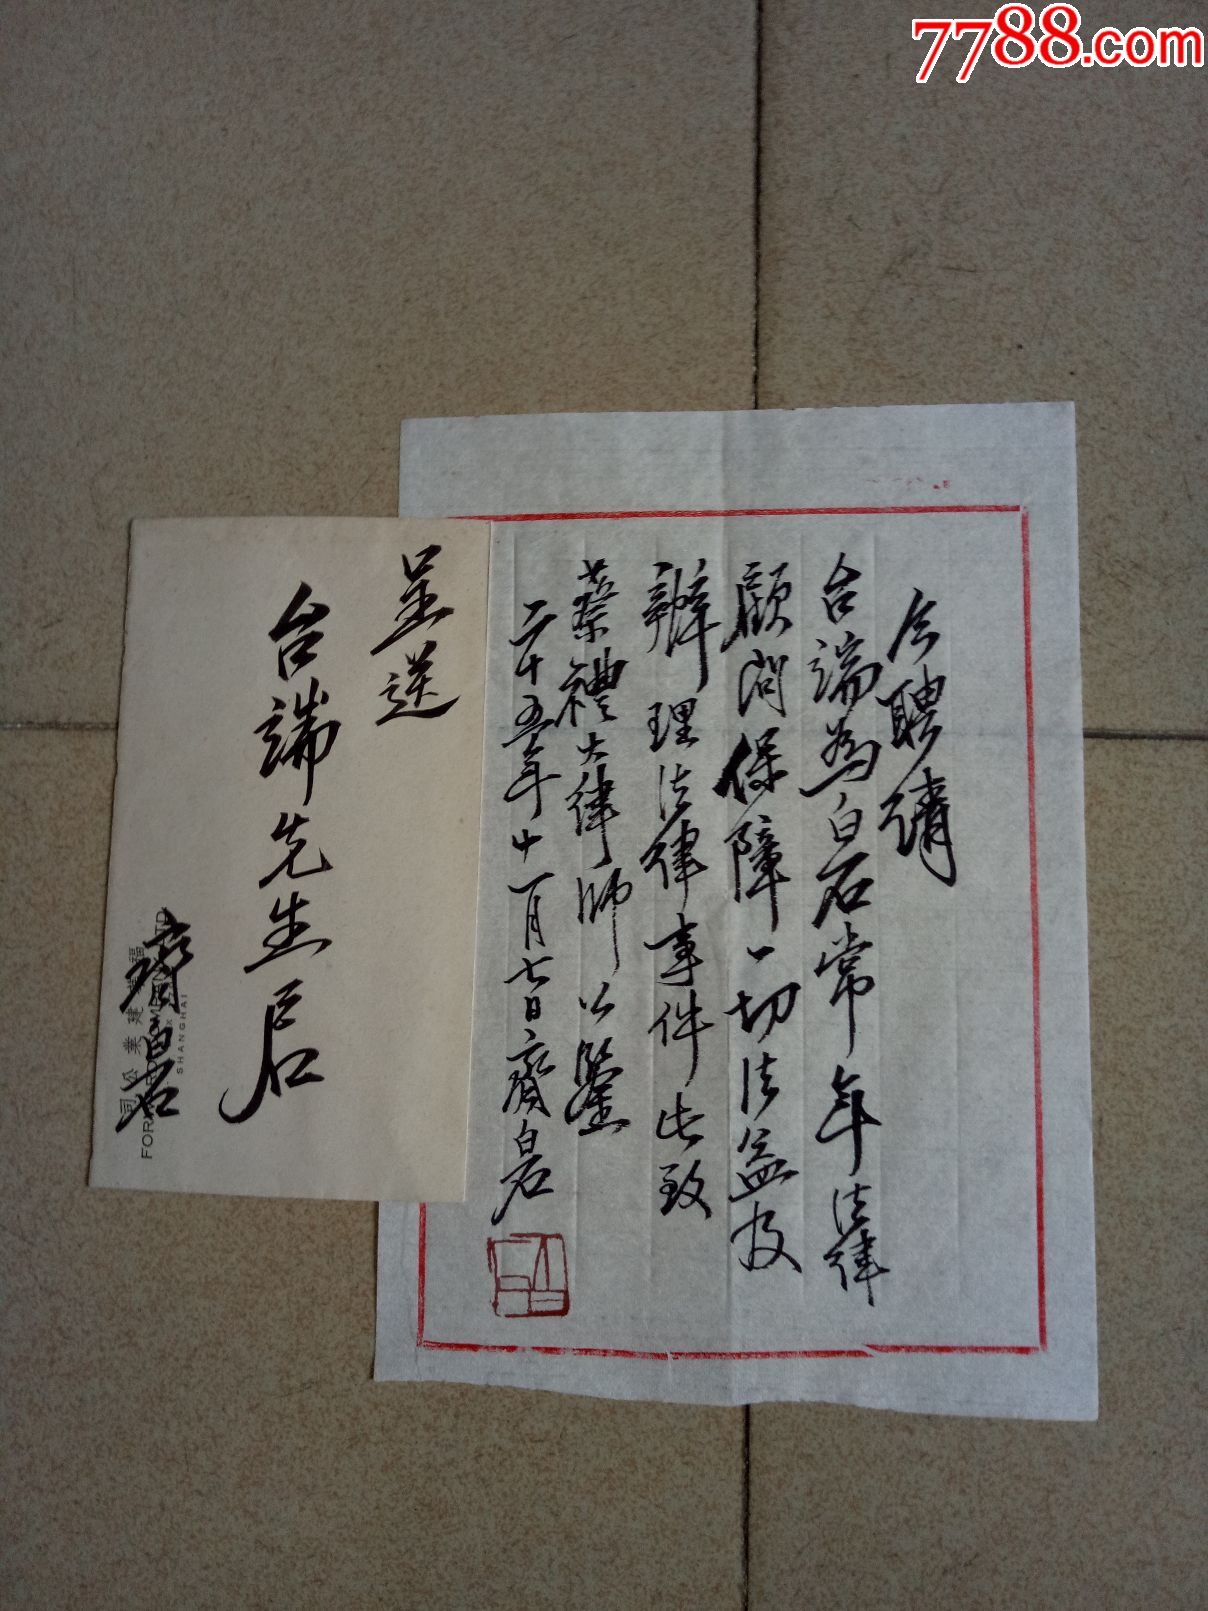 7788.com
今聘請
台端為白石常年法律
顧問保障一切法益及
辦理法律事件此致
蔡禮大律師公鑒
二十五年十一月七日齊白石
呈送
台端先生啟
齊白石
福
建業公司
SHANGHAI